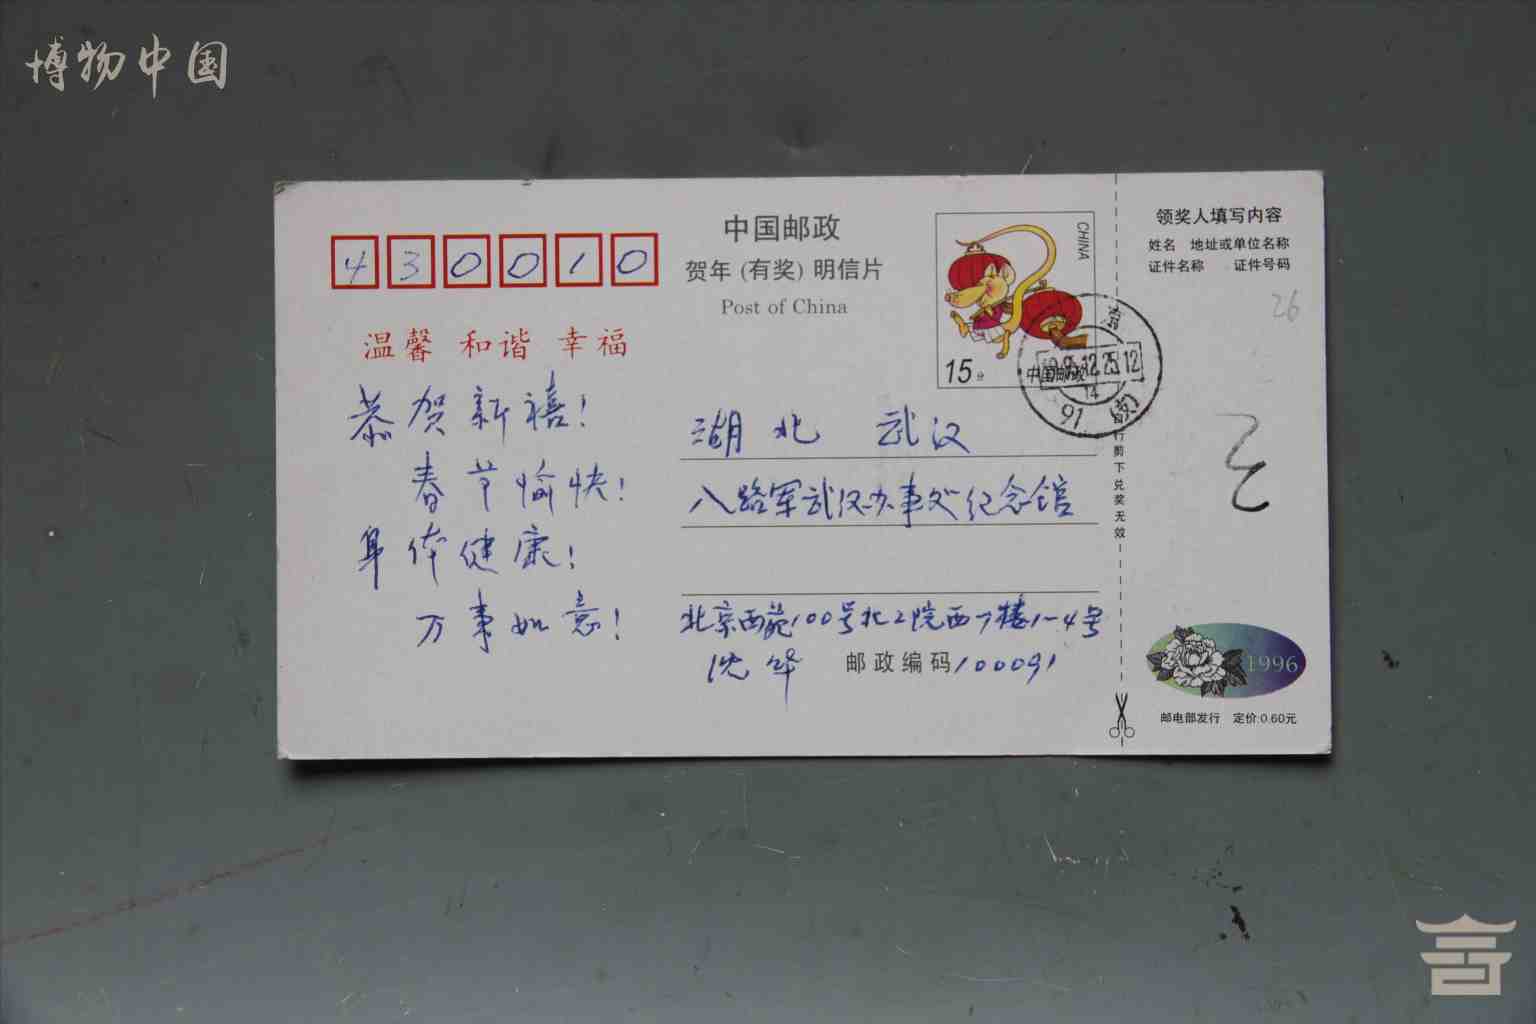 博物中国
430010
中国邮政
贺年(有奖)明信片
Post of China
CHINA
15分
中国邮政
温馨 和谐 幸福
恭贺新禧!
春节愉快!
身体健康!
万事如意!
湖北 武汉
八路军武汉办事处纪念馆
北京西苑100号北2院西7楼1-4号
沈华 邮政编码100091
95.12.25.12
14
91 (支)
领奖人填写内容
姓名 地址或单位名称
证件名称 证件号码
26
剪下兑奖无效
1996
邮电部发行 定价:0.60元